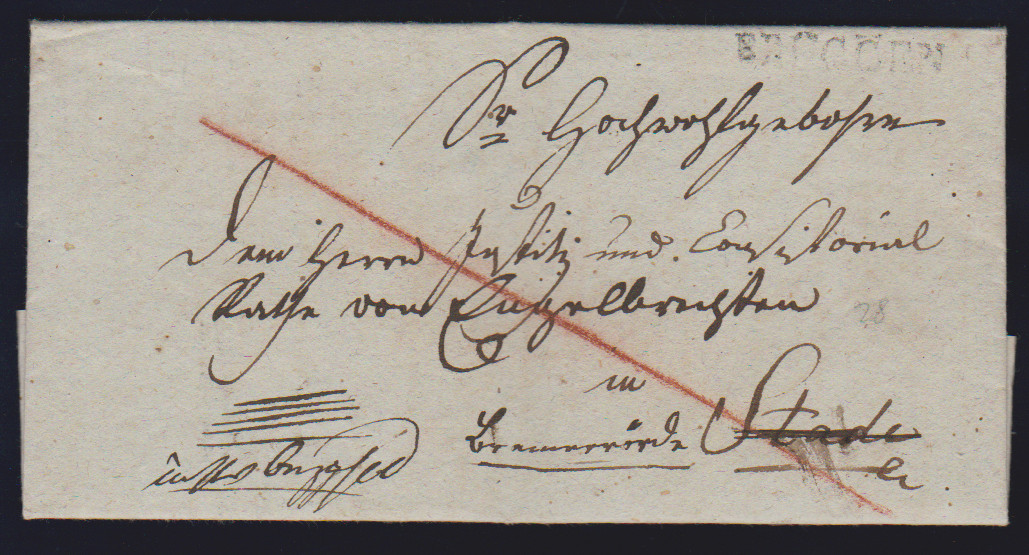 BRÜGGEN
Sr Hochwohlgebohrn
dem Herrn Justitz und Consistorial
Rathe von Engelbrechten
in
Bremervörde Stade
28